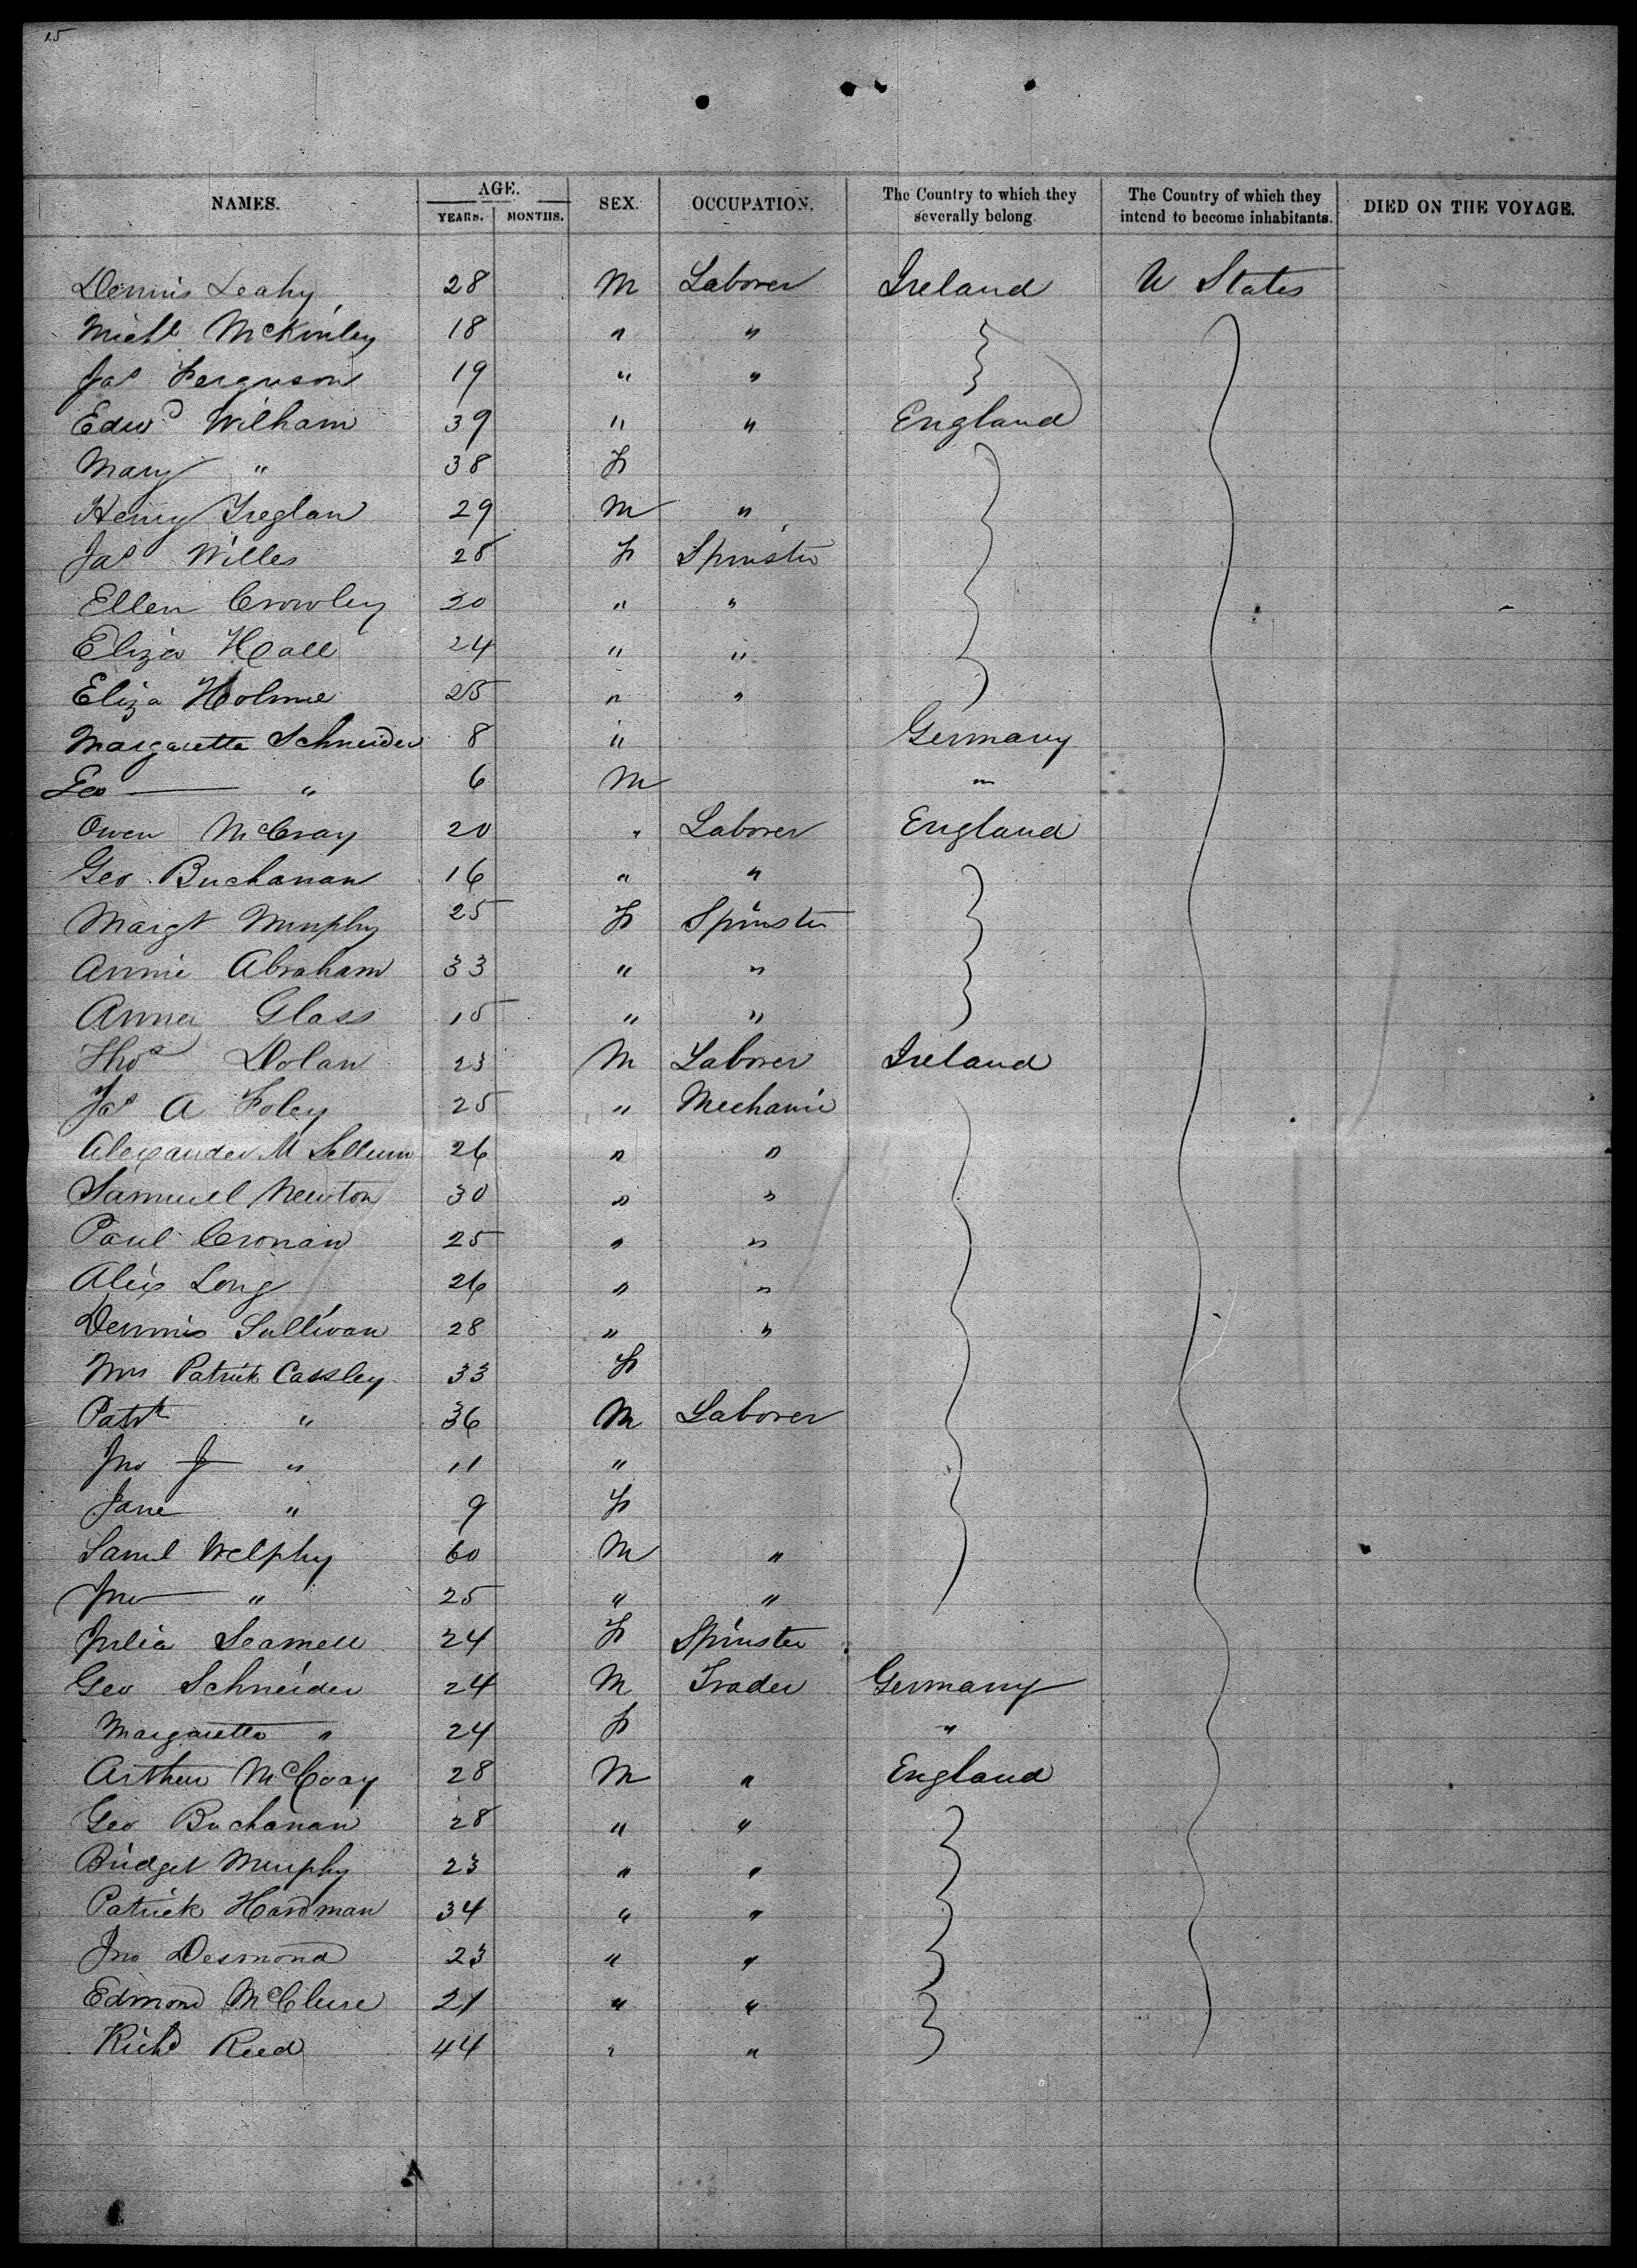 15
NAMES. AGE. YEARS. MONTHS. SEX. OCCUPATION. The Country to which they severally belong. The Country of which they intend to become inhabitants. DIED ON THE VOYAGE.
Dennis Leahy 28 M Laborer Ireland U States
Michl McKinley 18 " "
Jas Ferguson 19 " "
Edwd Wilham 39 " " England
Mary " 38 F
Henry Treglan 29 M "
Jas Willes 28 F Spinster
Ellen Crowley 20 " "
Eliza Hall 24 " "
Eliza Holme 25 " "
Margaretta Schneider 8 " Germany
Geo " 6 M "
Owen McCray 20 " Laborer England
Geo Buchanan 16 " "
Margt Murphy 25 F Spinster
Annie Abraham 33 " "
Anna Glass 15 " "
Thos Dolan 23 M Laborer Ireland
Jas A Foley 25 " Mechanic
Alexander M Sellum 26 " "
Samuel Newton 30 " "
Paul Cronan 25 " "
Alex Long 26 " "
Dennis Sullivan 28 " "
Mrs Patrick Cassley 33 F
Patk " 36 M Laborer
Jno J " 11 "
Jane " 9 F
Saml Welphy 60 M "
Jno " 25 " "
Julia Scamell 24 F Spinster
Geo Schneider 24 M Trader Germany
Margaretta " 24 F "
Arthur McCray 28 M " England
Geo Buchanan 28 " "
Bridget Murphy 23 " "
Patrick Hardman 34 " "
Jno Desmond 23 " "
Edmond McClure 21 " "
Richd Reed 44 " "